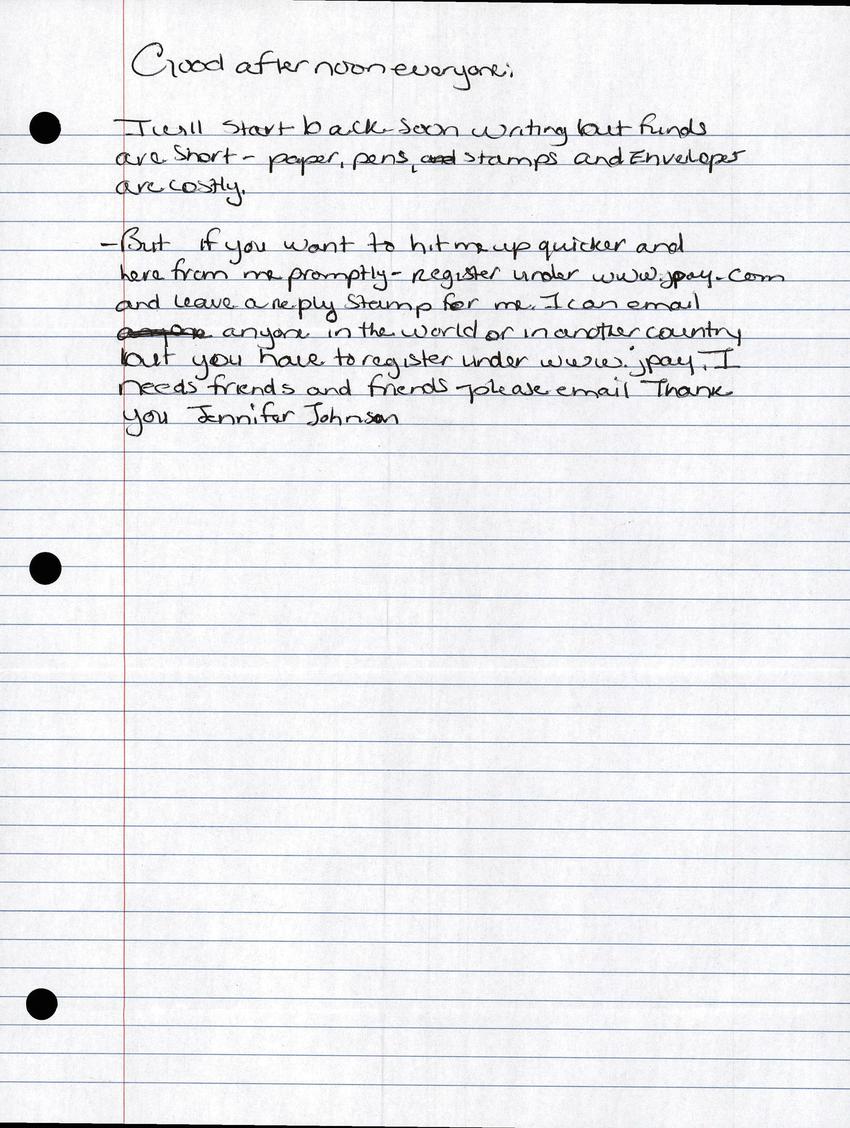 Good afternoon everyone;
I will start back soon writing but funds
are short - paper, pens, stamps and Envelopes
are costly.
- But if you want to hit me up quicker and
here from me promptly - register under www.jpay.com
and leave a reply stamp for me. I can email
anyone in the world or in another country
but you have to register under www.jpay. I
needs friends and friends - please email Thank
you Jennifer Johnson